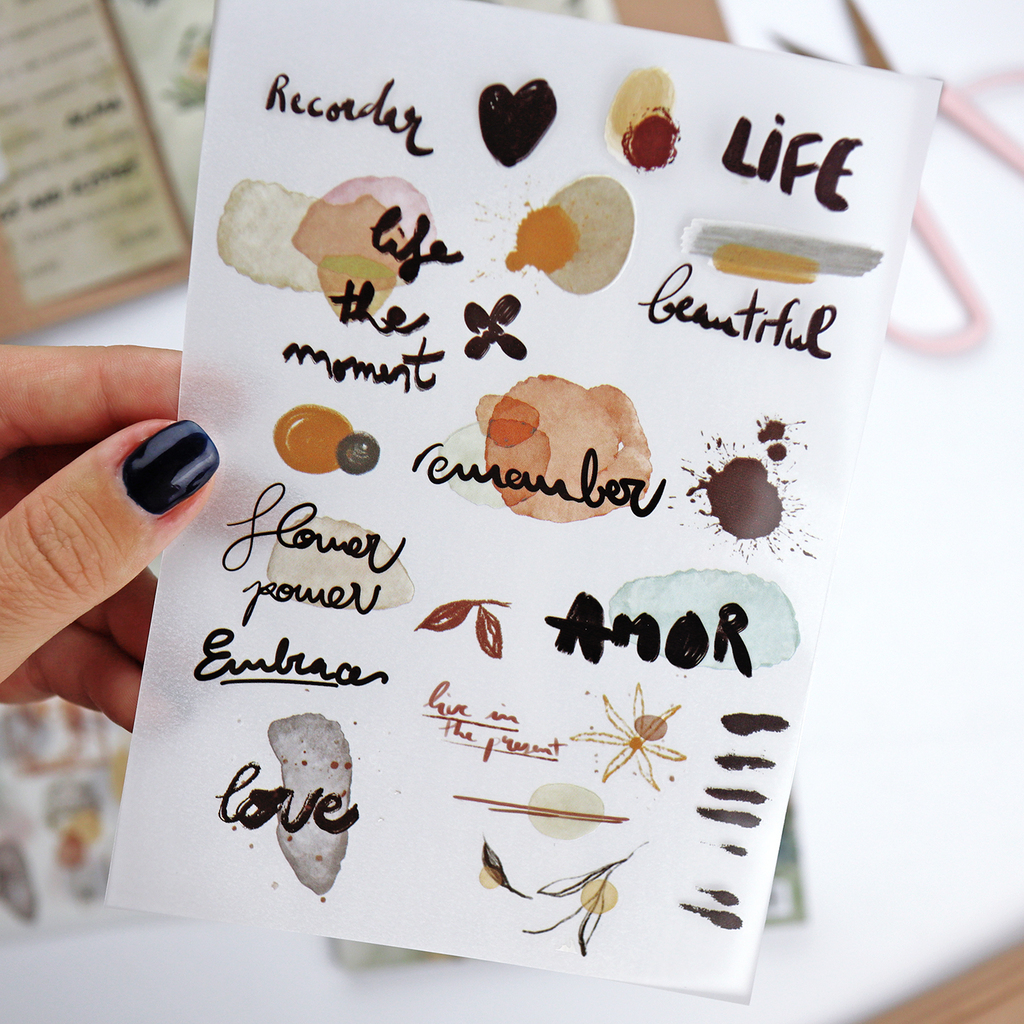 Recorder
LiFE
life
the
moment
beautiful
remember
flower
power
AMOR
Embrace
live in
the present
love